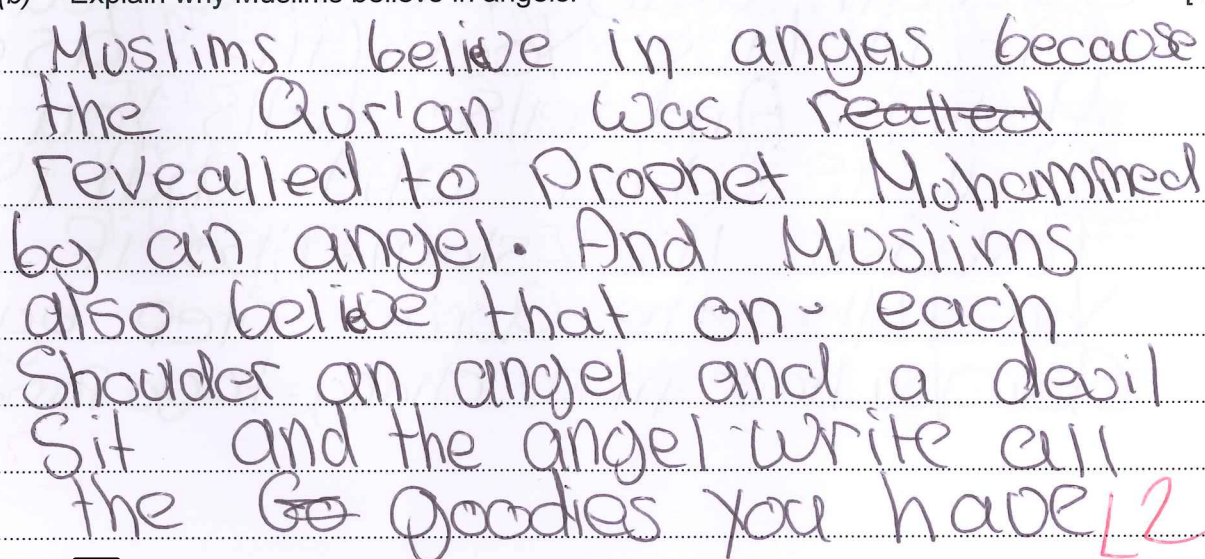 (b) Explain why Muslims believe in angels.
Muslims believe in angels because
the Qur'an was realted
revealled to Prophet Mohammed
by an angel. And Muslims
also believe that on each
Shoulder an angel and a devil
Sit and the angel write all
the Go goodies you have L2